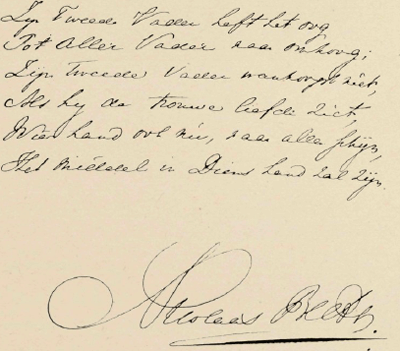 Zijn Tweede Vader heft het oog
Tot Aller Vader naar omhoog;
Zijn Tweede Vader wanhoopt niet,
Als hy de trouwe liefde ziet,
Wier hand ook nu, naar allen schijn,
Het middel in Diens hand zal zijn.
Nicolaas Beets.